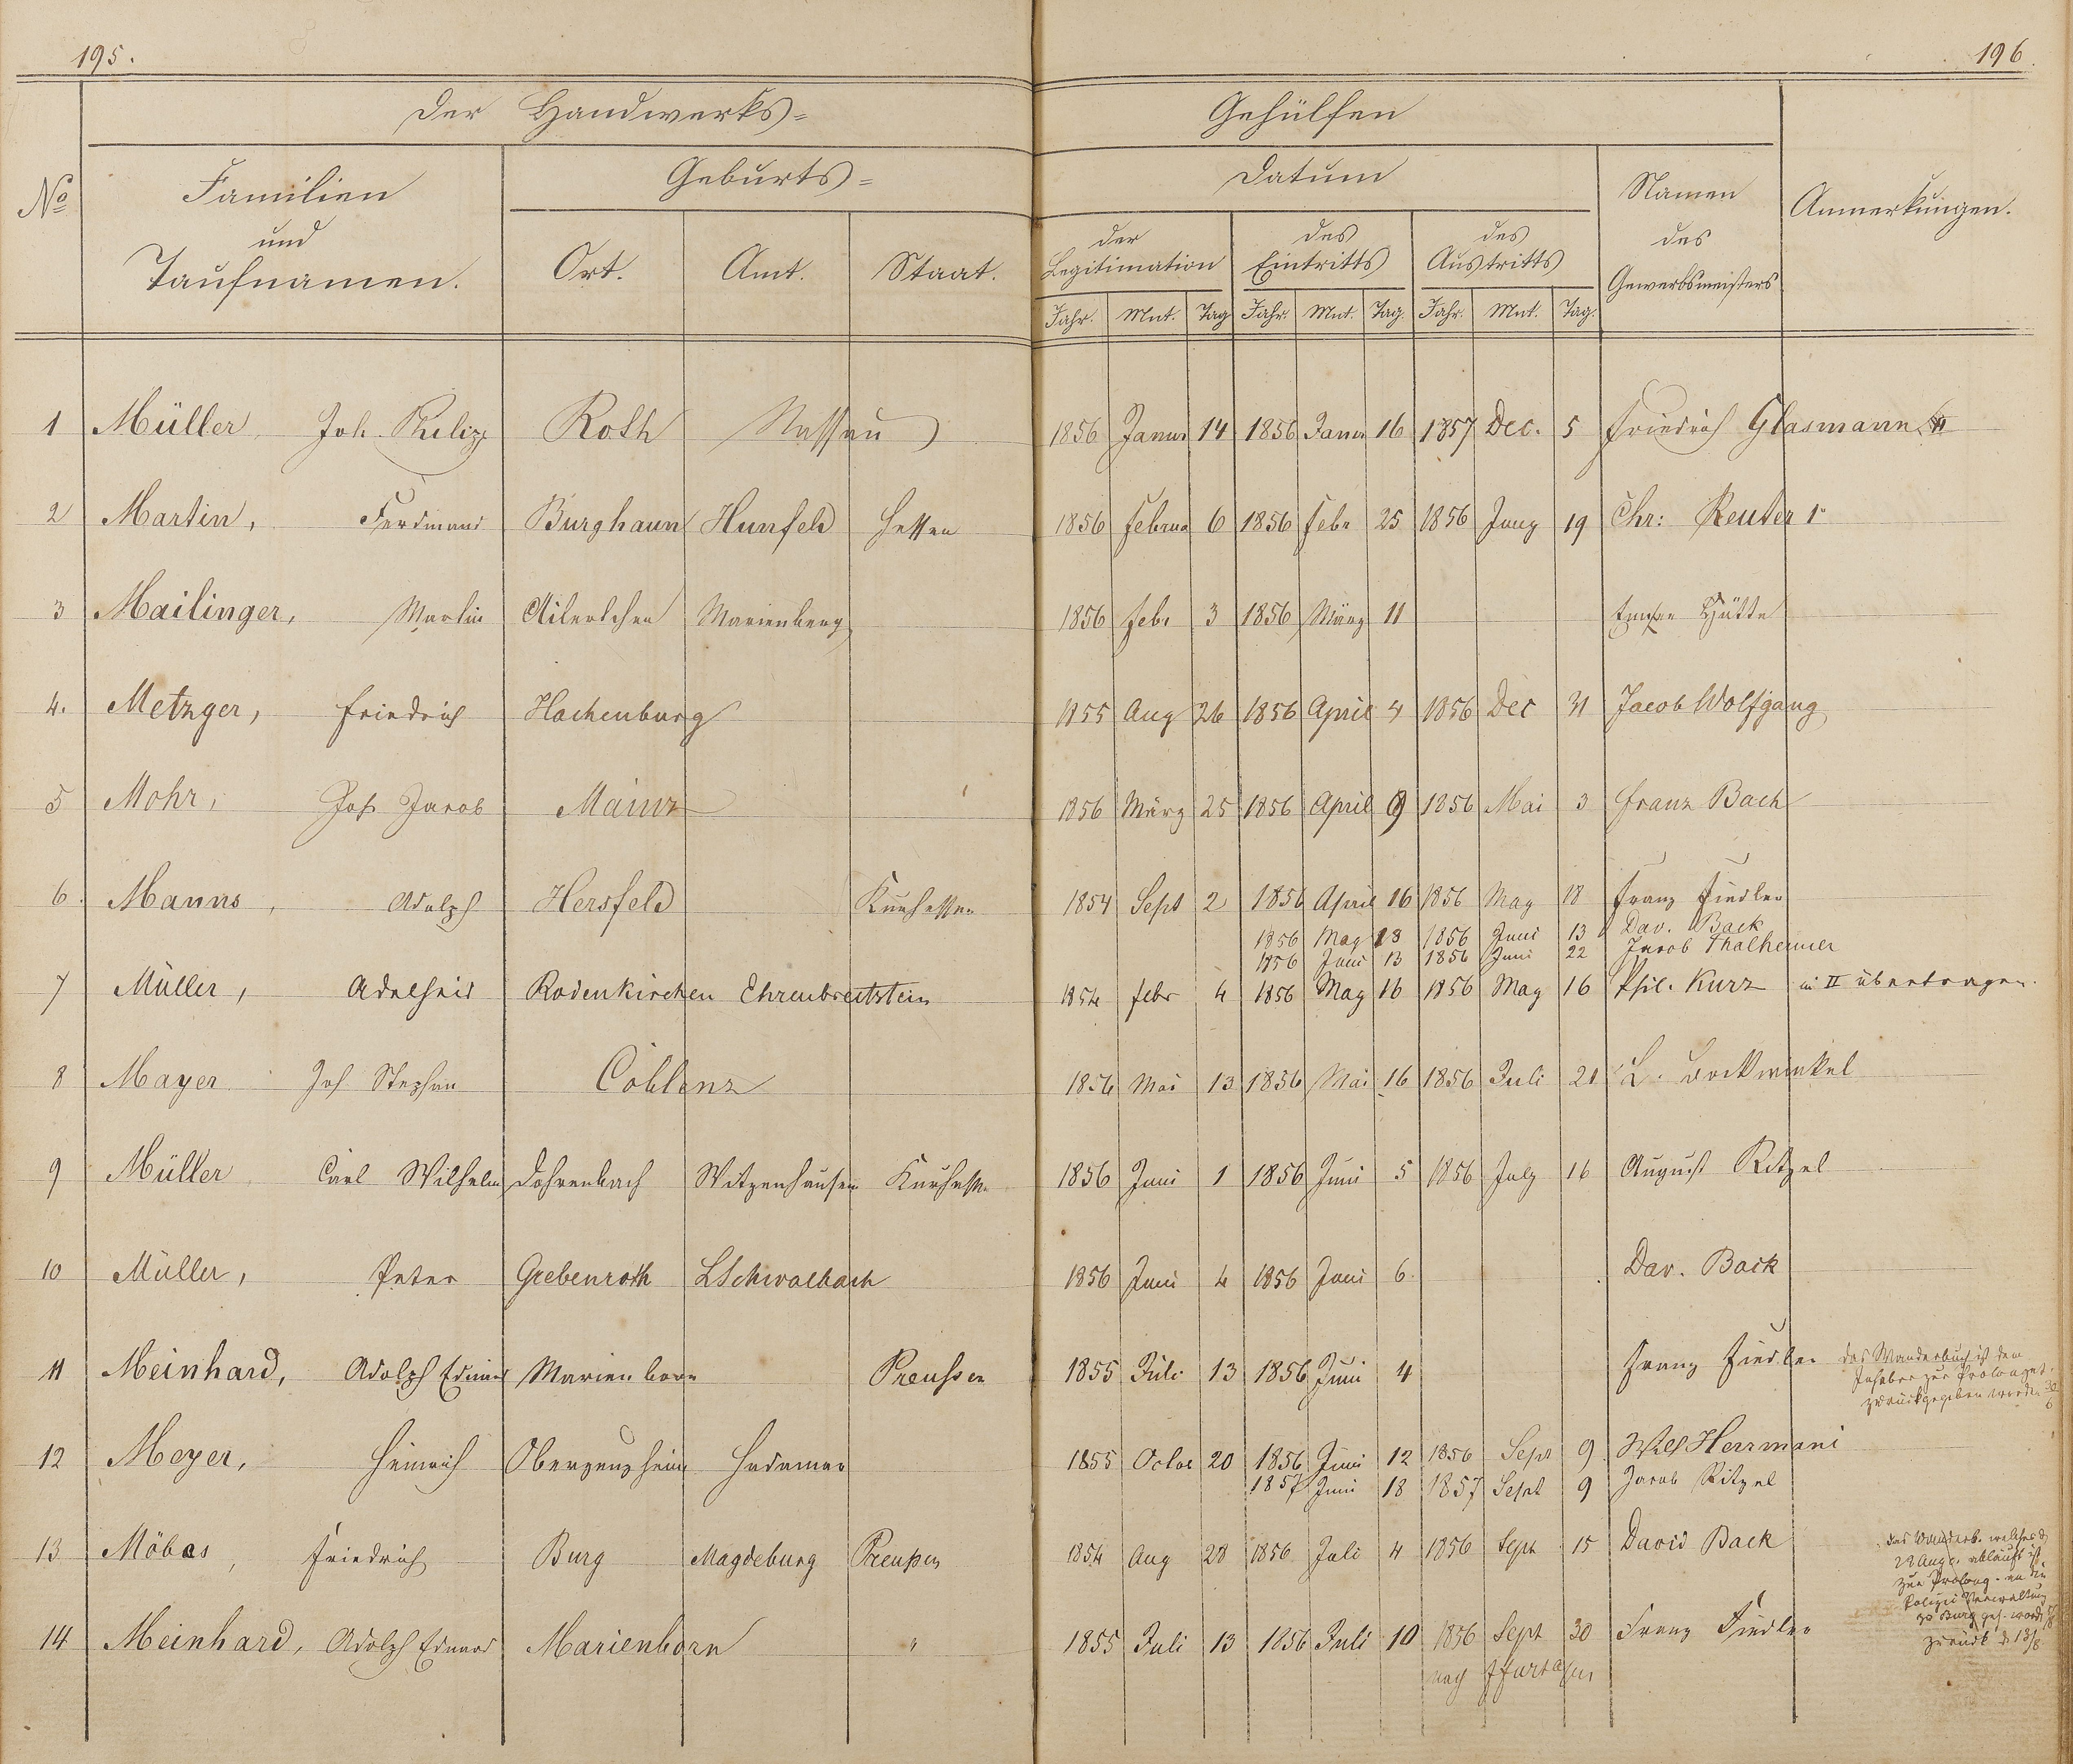 195.
196.
Der Handwerks=
Gehülfen
No
Familien
und
Taufnamen.
Geburts=
Ort.
Amt.
Staat.
Datum
der
Legitimation
des
Eintritts
des
Austritts
Jahr. Mnt. Tag Jahr. Mnt. Tag. Jahr. Mnt. Tag.
Namen
des
Gewerbsmeisters
Anmerkungen.
1 Müller Joh. Philipp Roth Nassau 1856 Janur 14 1856 Janr 16 1857 Dec. 5 Friedrich Glasmann
2 Martin, Ferdinand Burghaun Hunfeld Hessen 1856 Februa 6 1856 Febr 25 1856 Juny 19 Chr: Reuter 1r
3 Mailinger, Martin Ailertchen Marienberg 1856 Febr 3 1856 März 11 Emser Hütte
4. Metzger, Friedrich Hachenburg 1855 Aug 26 1856 April 4 1856 Dec 31 Jacob Wolfgang
5 Mohr, Joh Jacob Mainz 1856 März 25 1856 April 9 1856 Mai 3 Franz Bach
6. Manns, Adolph Hersfeld Kurhessen 1854 Sept 2 1856 April 16 1856 May 18 Franz Fiedler
1856 May 18 1856 Juni 13 Dav. Back
1856 Juni 13 1856 Juni 22 Jacob Thalheimer
7 Müller, Adelheid Rodenkirchen Ehrenbreitstein 1854 Febr 4 1856 May 16 1856 May 16 Phil. Kurz in II übertragen.
8 Mayer Joh Stephan Coblenz 1856 Mai 13 1856 Mai 16 1856 Juli 21 L. Bockwinkel
9 Müller Carl Wilhelm Dohrenbach Witzenhausen Kurhessen 1856 Juni 1 1856 Juni 5 1856 July 16 August Ritzel
10 Müller, Peter Grebenroth LSchwalbach 1856 Juni 4 1856 Juni 6. Dav. Back
11 Meinhard, Adolph Eduard Marienborn Preußen 1855 Juli 13 1856 Juni 4 Franz Fiedler
das Wanderbuch ist dem
Inhaber zur Prolongat.
zurückgegeben worden 30/6
12 Meyer, Heinrich Oberzeuzheim Hadamar 1855 Octbr 20 1856 Juni 12 1856 Sept 9. Wilh Herrmani
1857 Juni 18 1857 Sept 9 Jacob Ritzel
13 Möbes, Friedrich Burg Magdeburg Preußen 1854 Aug 28 1856 Juli 4 1856 Sept 15 David Back
das Wanderb. welches d
28 Aug c. abläuft ist
zur Prolong. an die
Polizei Verwaltung
zu Burg ges. word
zurück d 13/8
14 Meinhard, Adolph Eduard Marienborn " 1855 Juli 13 1856 Juli 10 1856 Sept 30 Franz Fiedler
nach